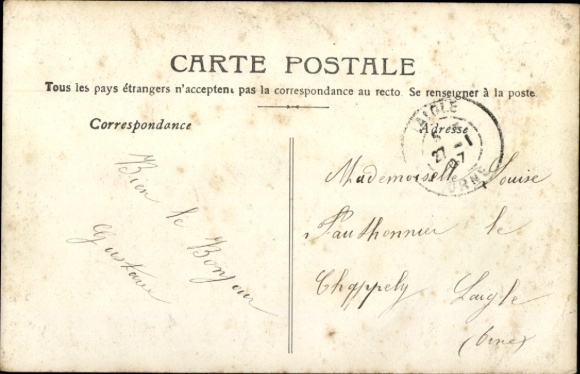 CARTE POSTALE
Tous les pays étrangers n'acceptent pas la correspondance au recto. Se renseigner à la poste.
Correspondance
Adresse
LAIGLE
27-1
07
ORNE
Bien le Bonjour
Gustave
Mademoiselle Louise
Pauthonnier le
Chappely Laigle
(Orne)